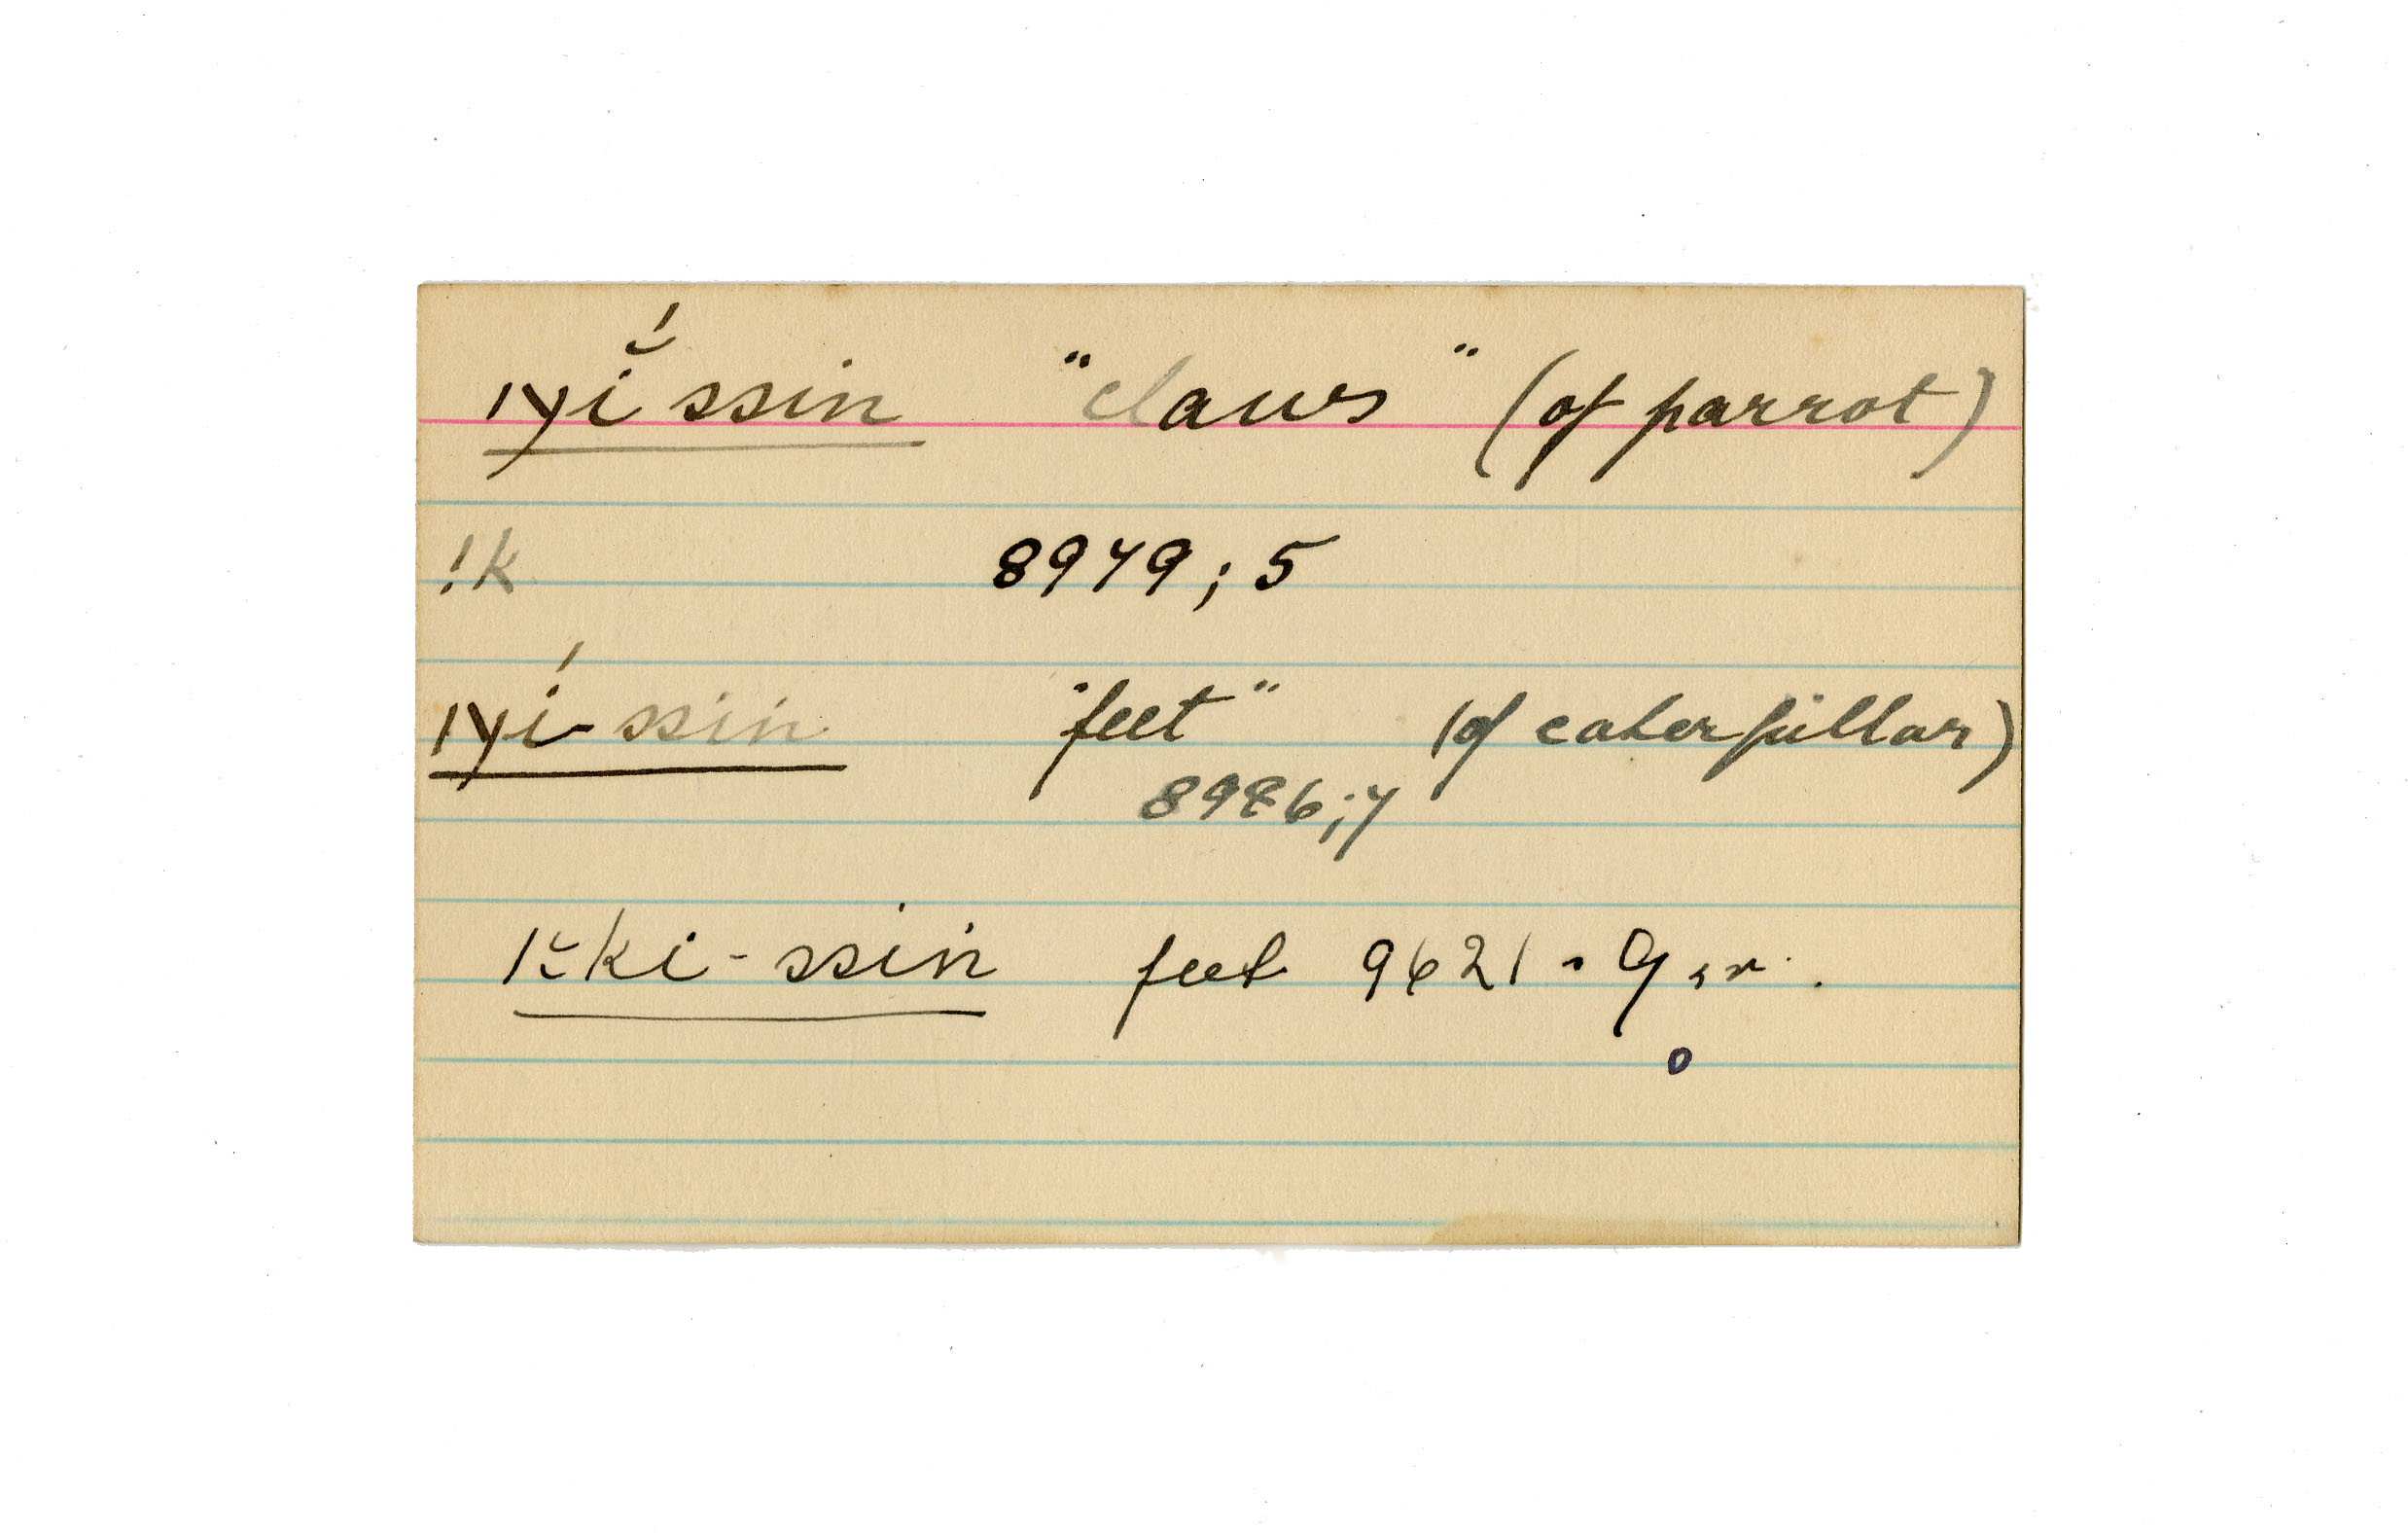 ɪyĭ́ ssin "claws" (of parrot)
!k 8979; 5
ɪyí- ssin "feet" (of caterpillar)
8986;7
ki-ssin feet 9621